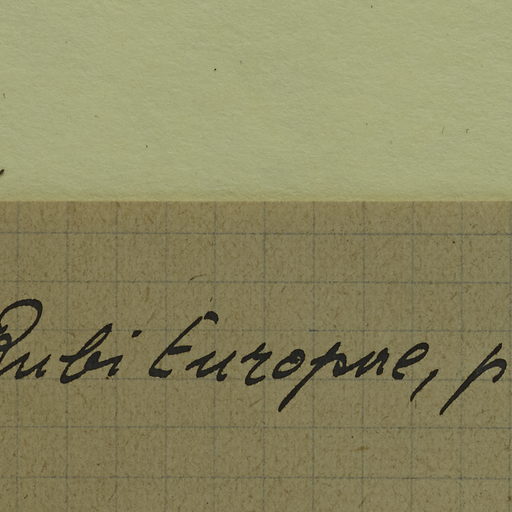 Rubi Europae, p